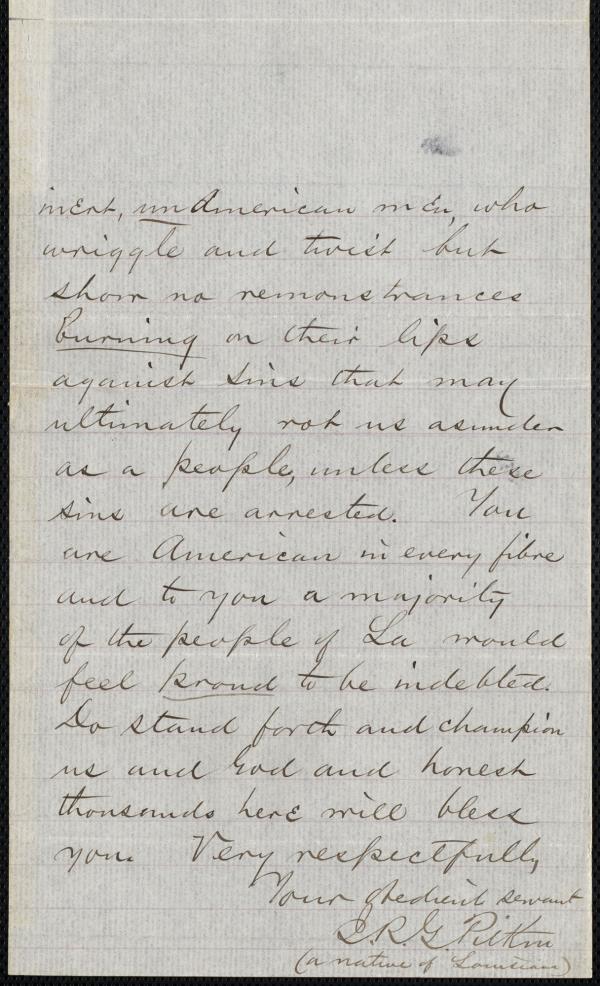 inert, unAmerican men, who
wriggle and twist but
show no remonstrances
burning on their lips
against sins that may
ultimately rot us asunder
as a people, unless these
sins are arrested. You
are American in every fibre
and to you a majority
of the people of La would
feel proud to be indebted.
Do stand forth and champion
us and God and honest
thousands here will bless
you. Very respectfully
Your obedient servant
J.R.G. Pitkin
(a native of Louisiana)